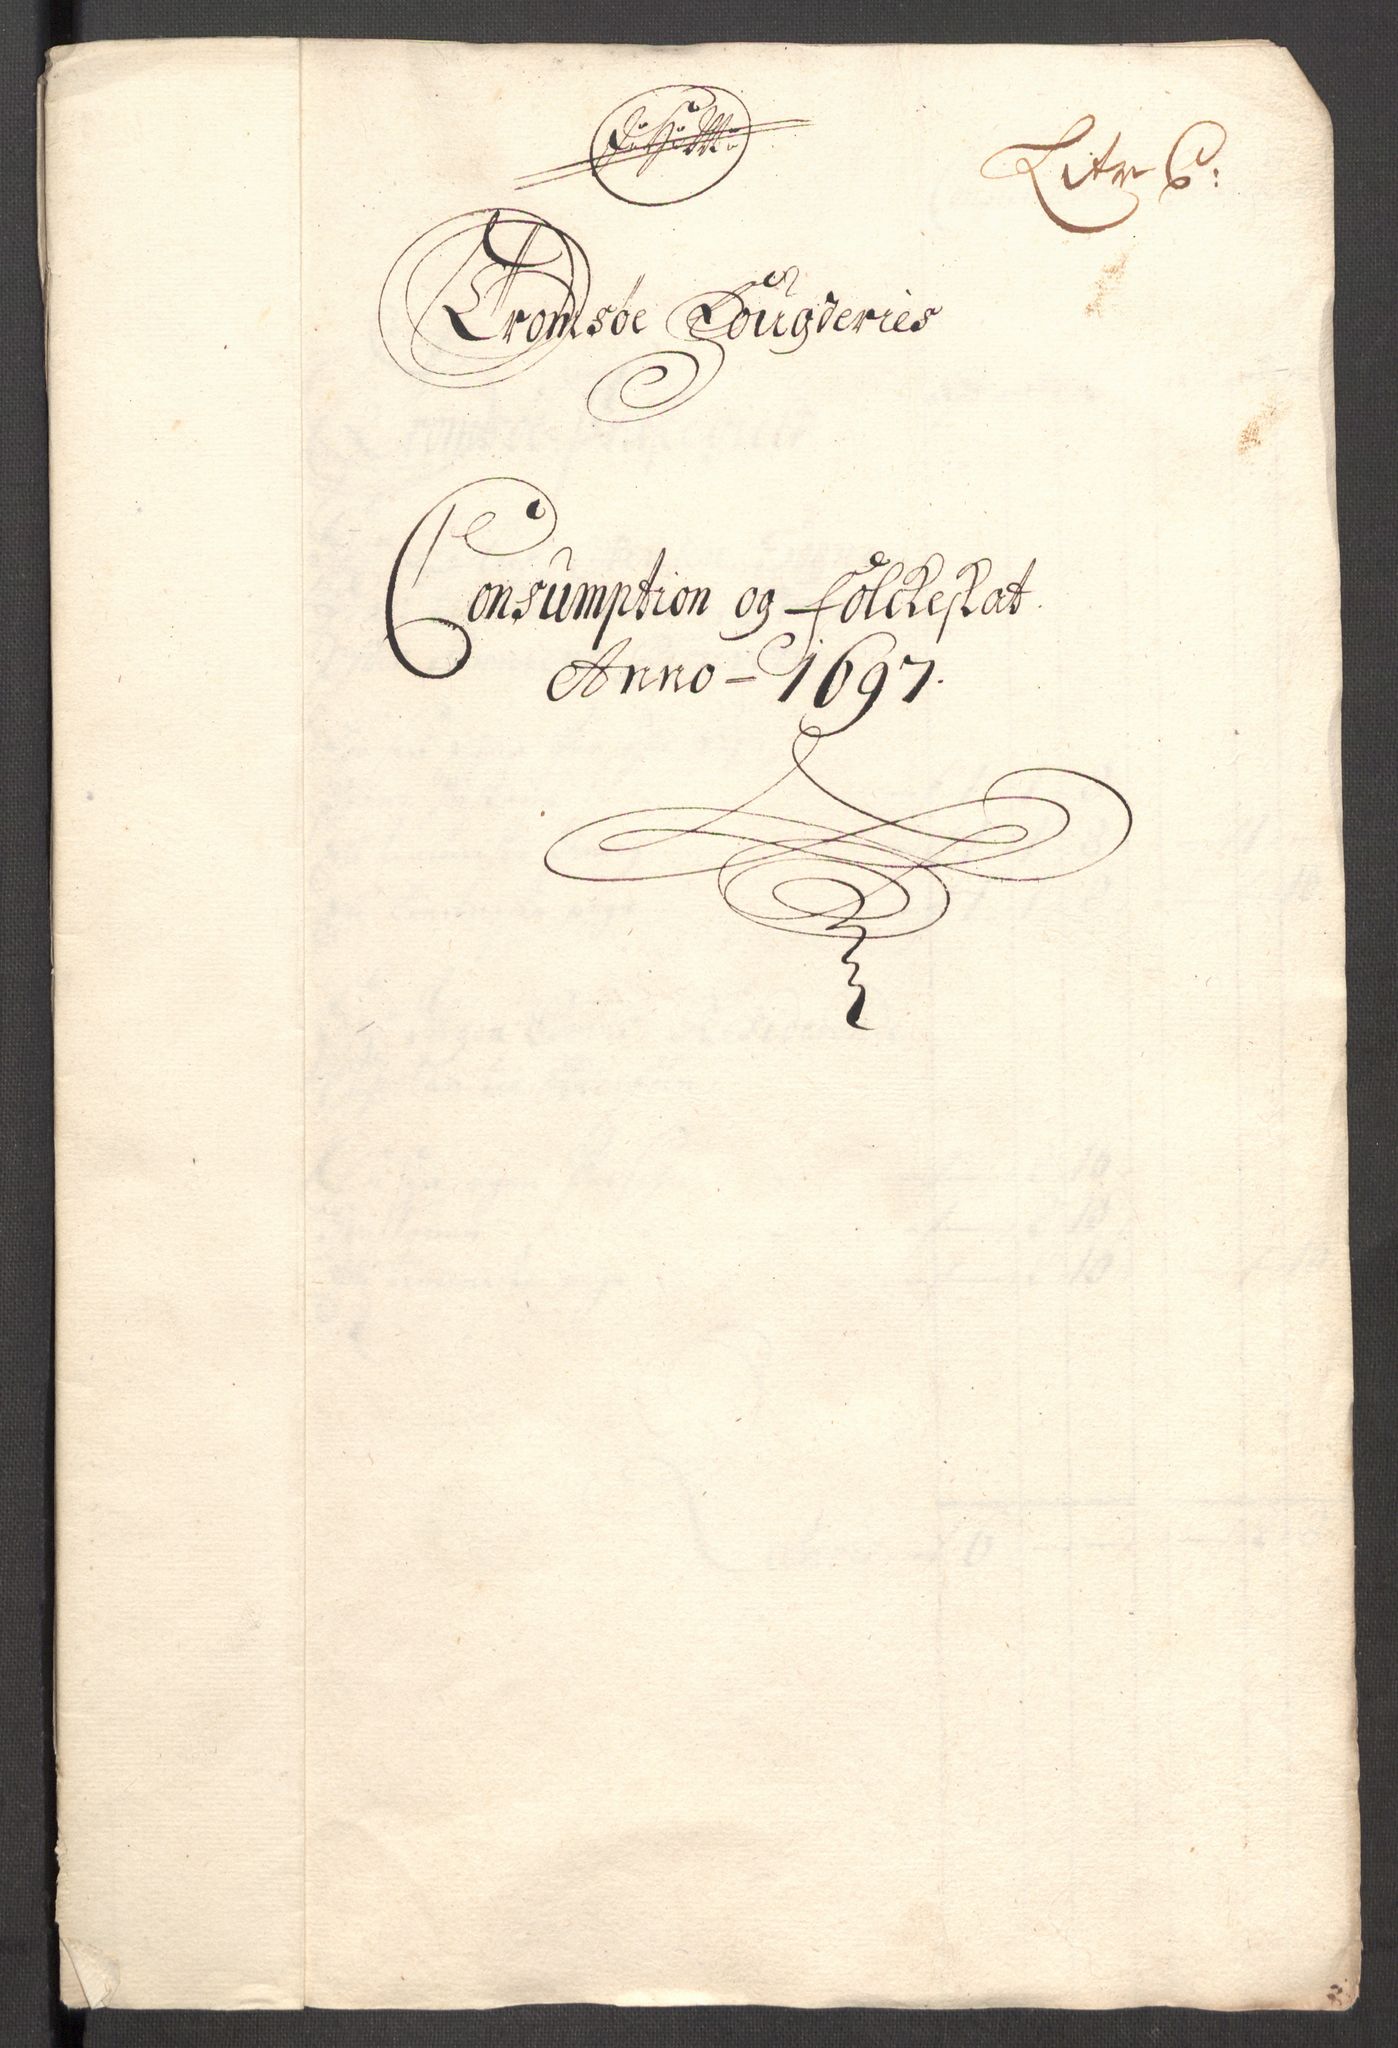 Litr C:
Tromsøe Fougderies
Consumption og Folckeskat
Anno - 1697.